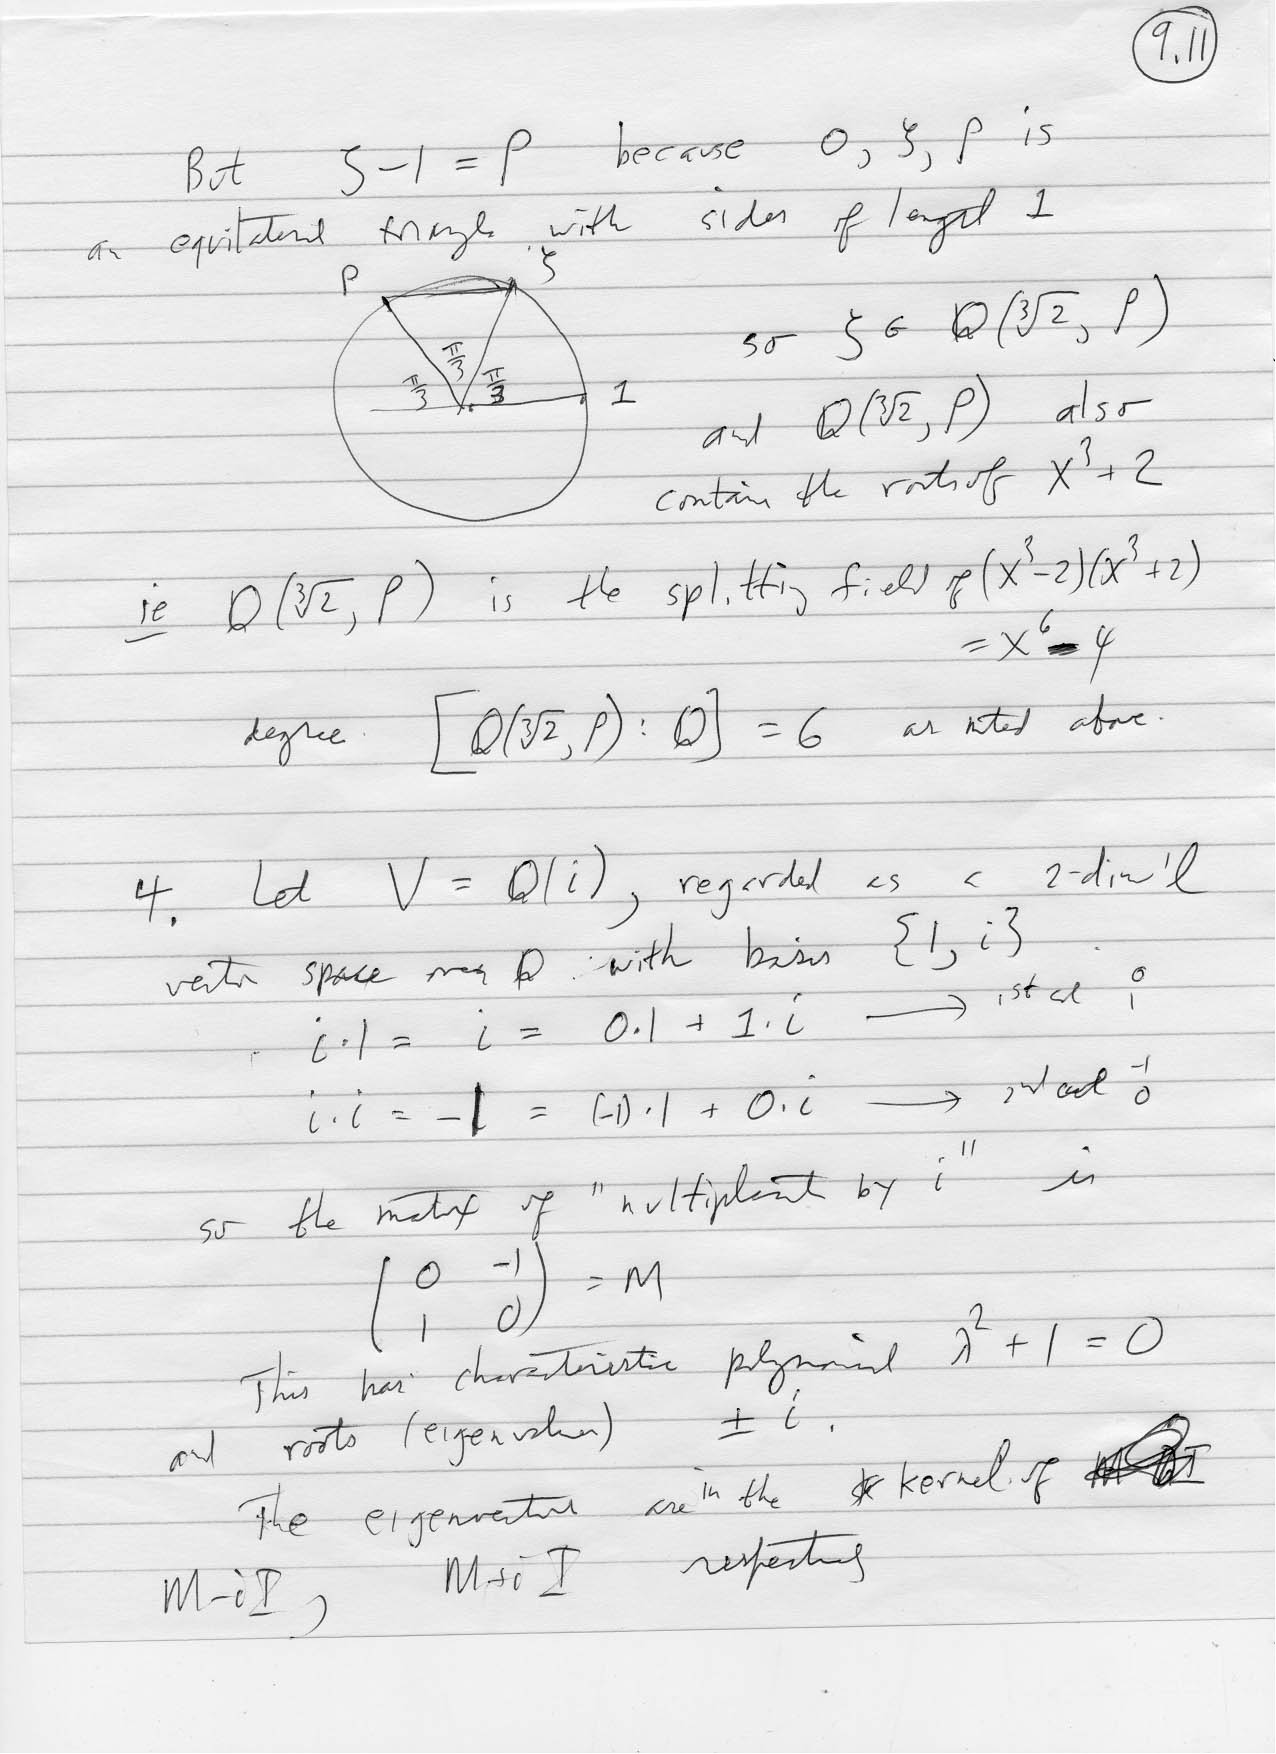 9.11
But ζ-1 = ρ because 0, ζ, ρ is
an equilateral triangle with sides of length 1
ρ ζ
π/3 π/3 π/3 1
so ζ ∈ Q(∛2, ρ)
and Q(∛2, ρ) also
contain the roots of X³+2
ie Q(∛2, ρ) is the splitting field of (X³-2)(X³+2)
= X⁶-4
degree [Q(∛2, ρ) : Q] = 6 as noted above.
4. Let V = Q(i), regarded as a 2-dim'l
vector space over Q with basis {1, i}
i·1 = i = 0·1 + 1·i → 1st col 0 1
i·i = -1 = (-1)·1 + 0·i → 2nd col -1 0
so the matrix of "multiplicat by i" is
( 0 -1
1 0 ) = M
This has characteristic polynomial λ²+1 = 0
and roots (eigenvalues) ± i.
The eigenvectors are in the kernel of
M-iI, M+iI respectively